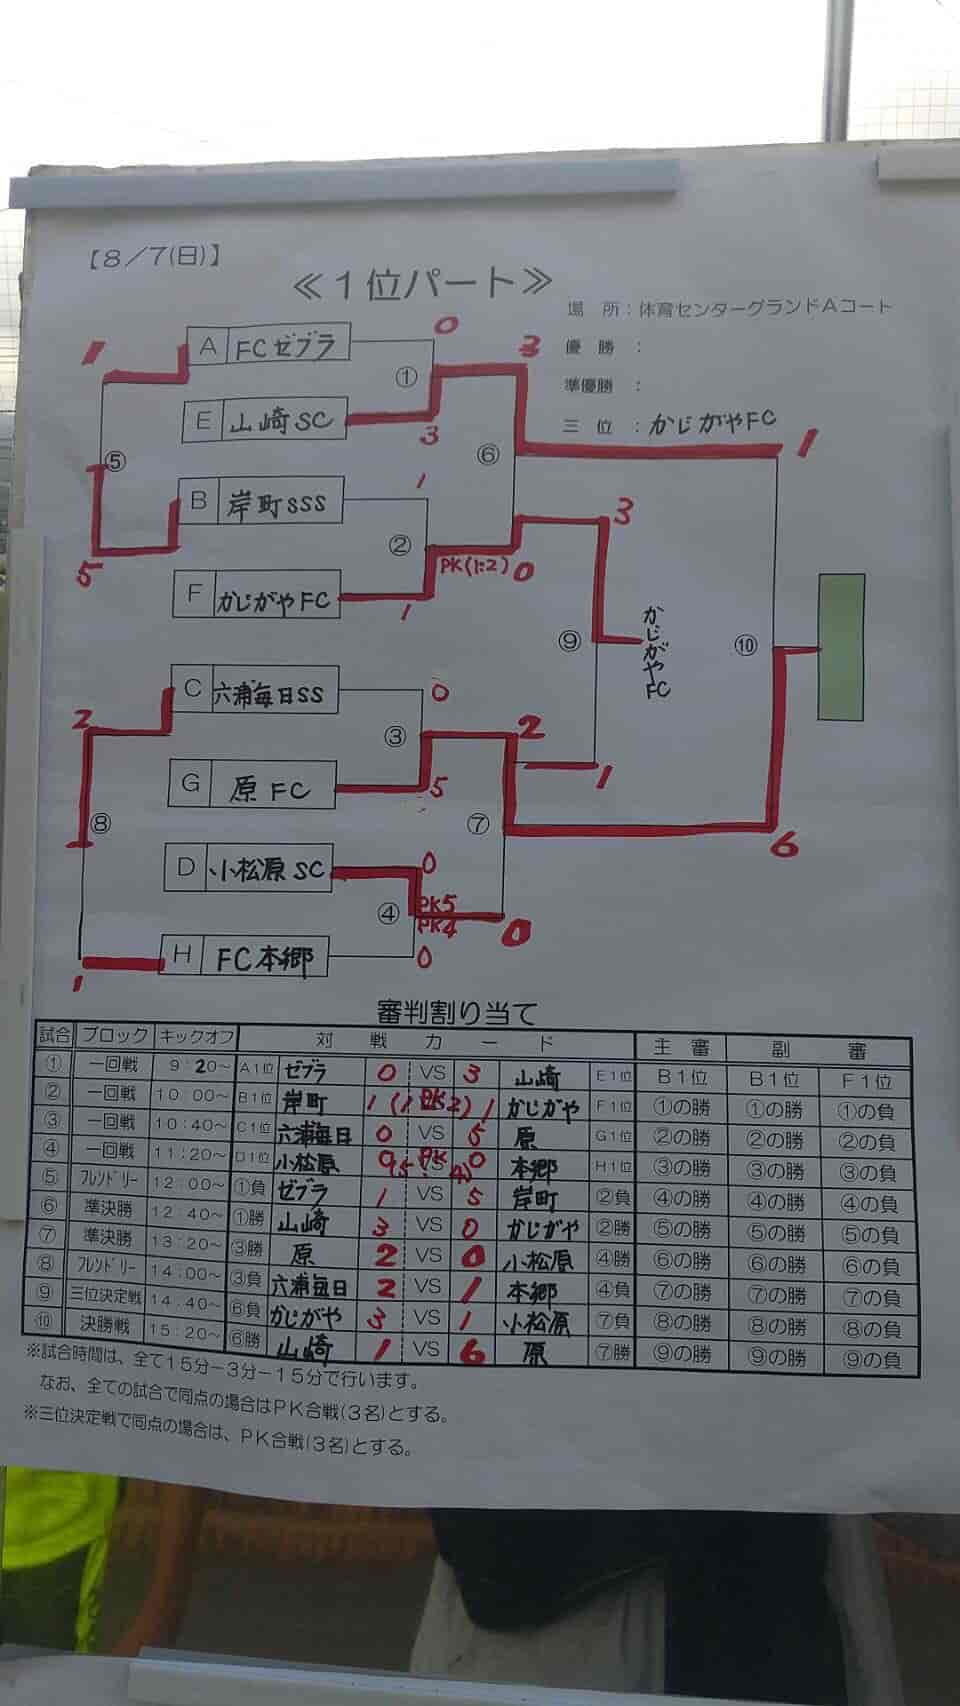 【8／7(日)】
≪１位パート≫
場　所：体育センターグランドAコート
優　勝　：
準優勝　：
三　位　：かじがやFC
1
A FCゼブラ
0
①
3
E 山崎SC
3
⑤
⑥
1
1
B 岸町SSS
②
3
5
PK(1:2) 0
F かじがやFC
1
⑨
かじがやFC
⑩
C 六浦毎日SS
0
2
③
2
G 原FC
5
1
⑧
⑦
6
D 小松原SC
0
④
PK5
PK4
0
H FC本郷
0
1
審判割り当て
試合 ブロック キックオフ 対戦カード 主審 副審
① 一回戦 9:20～ A1位 ゼブラ 0 VS 3 山崎 E1位 B1位 B1位 F1位
② 一回戦 10:00～ B1位 岸町 1 (1 PK 2) 1 かじがや F1位 ①の勝 ①の勝 ①の負
③ 一回戦 10:40～ C1位 六浦毎日 0 VS 5 原 G1位 ②の勝 ②の勝 ②の負
④ 一回戦 11:20～ D1位 小松原 0 5 PK 4 0 本郷 H1位 ③の勝 ③の勝 ③の負
⑤ フレンドリー 12:00～ ①負 ゼブラ 1 VS 5 岸町 ②負 ④の勝 ④の勝 ④の負
⑥ 準決勝 12:40～ ①勝 山崎 3 VS 0 かじがや ②勝 ⑤の勝 ⑤の勝 ⑤の負
⑦ 準決勝 13:20～ ③勝 原 2 VS 0 小松原 ④勝 ⑥の勝 ⑥の勝 ⑥の負
⑧ フレンドリー 14:00～ ③負 六浦毎日 2 VS 1 本郷 ④負 ⑦の勝 ⑦の勝 ⑦の負
⑨ 三位決定戦 14:40～ ⑥負 かじがや 3 VS 1 小松原 ⑦負 ⑧の勝 ⑧の勝 ⑧の負
⑩ 決勝戦 15:20～ ⑥勝 山崎 1 VS 6 原 ⑦勝 ⑨の勝 ⑨の勝 ⑨の負
※試合時間は、全て15分－3分－15分で行います。
なお、全ての試合で同点の場合はPK合戦(3名)とする。
※三位決定戦で同点の場合は、PK合戦(3名)とする。